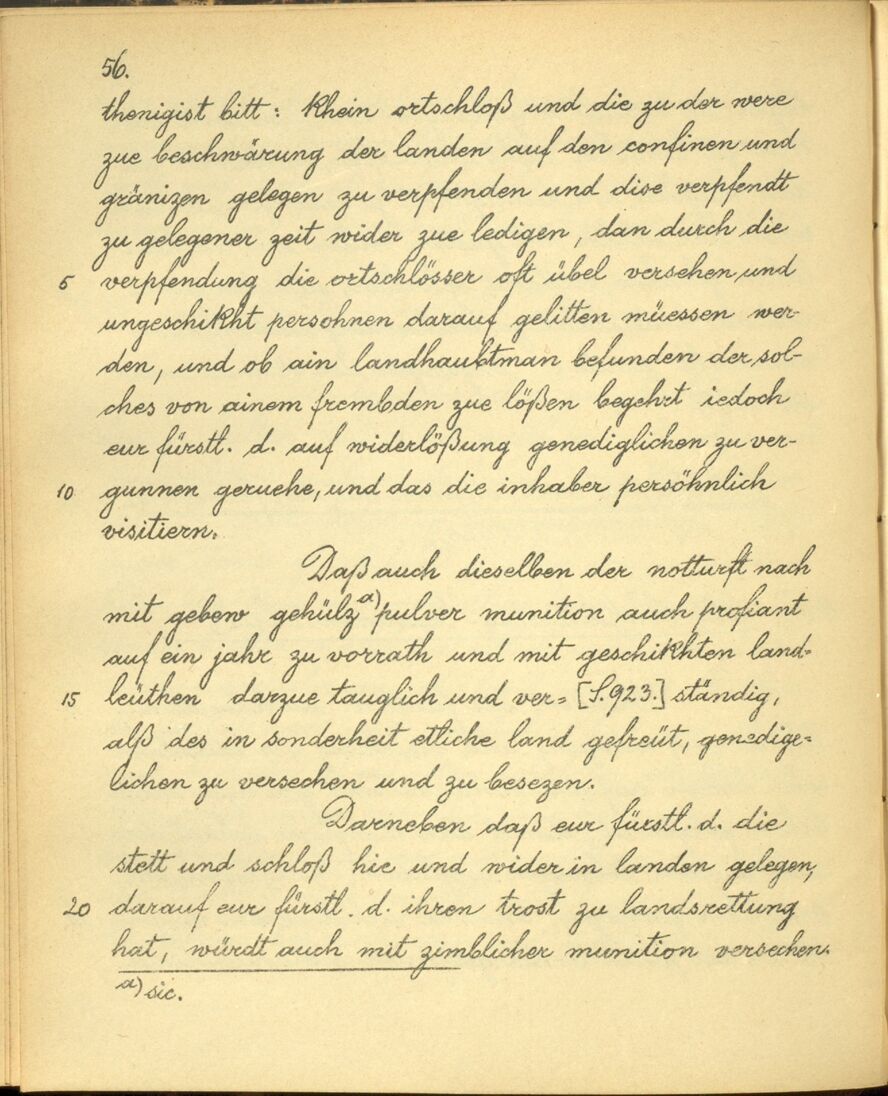 56.
thenigist bitt: Khein ortschloß und die zu der were
zue beschwärung der landen auf den confinen und
gränizen gelegen zu verpfenden und dise verpfendt
zu gelegener zeit wider zue ledigen, dan durch die
5 verpfendung die ortschlösser oft übel versehen und
ungeschikht persohnen darauf gelitten müessen wer-
den, und ob ain landhaubtman befunden der sol-
ches von ainem frembden zue lößen begehrt iedoch
eur fürstl. d. auf widerlößung genediglichen zu ver-
10 gunnen geruehe, und das die inhaber persöhnlich
visitiern.
Daß auch dieselben der notturft nach
mit gebew gehülz a) pulver munition auch profiant
auf ein jahr zu vorrath und mit geschikhten land-
15 leüthen darzue tauglich und ver= [S. 923.] ständig,
alß des in sonderheit etliche land gefreüt, genedige=
lichen zu versechen und zu besezen.
Darneben daß eur fürstl. d. die
stett und schloß hie und wider in landen gelegen,
20 darauf eur fürstl. d. ihren trost zu landsrettung
hat, würdt auch mit zimblicher munition versechen.
a) sic.